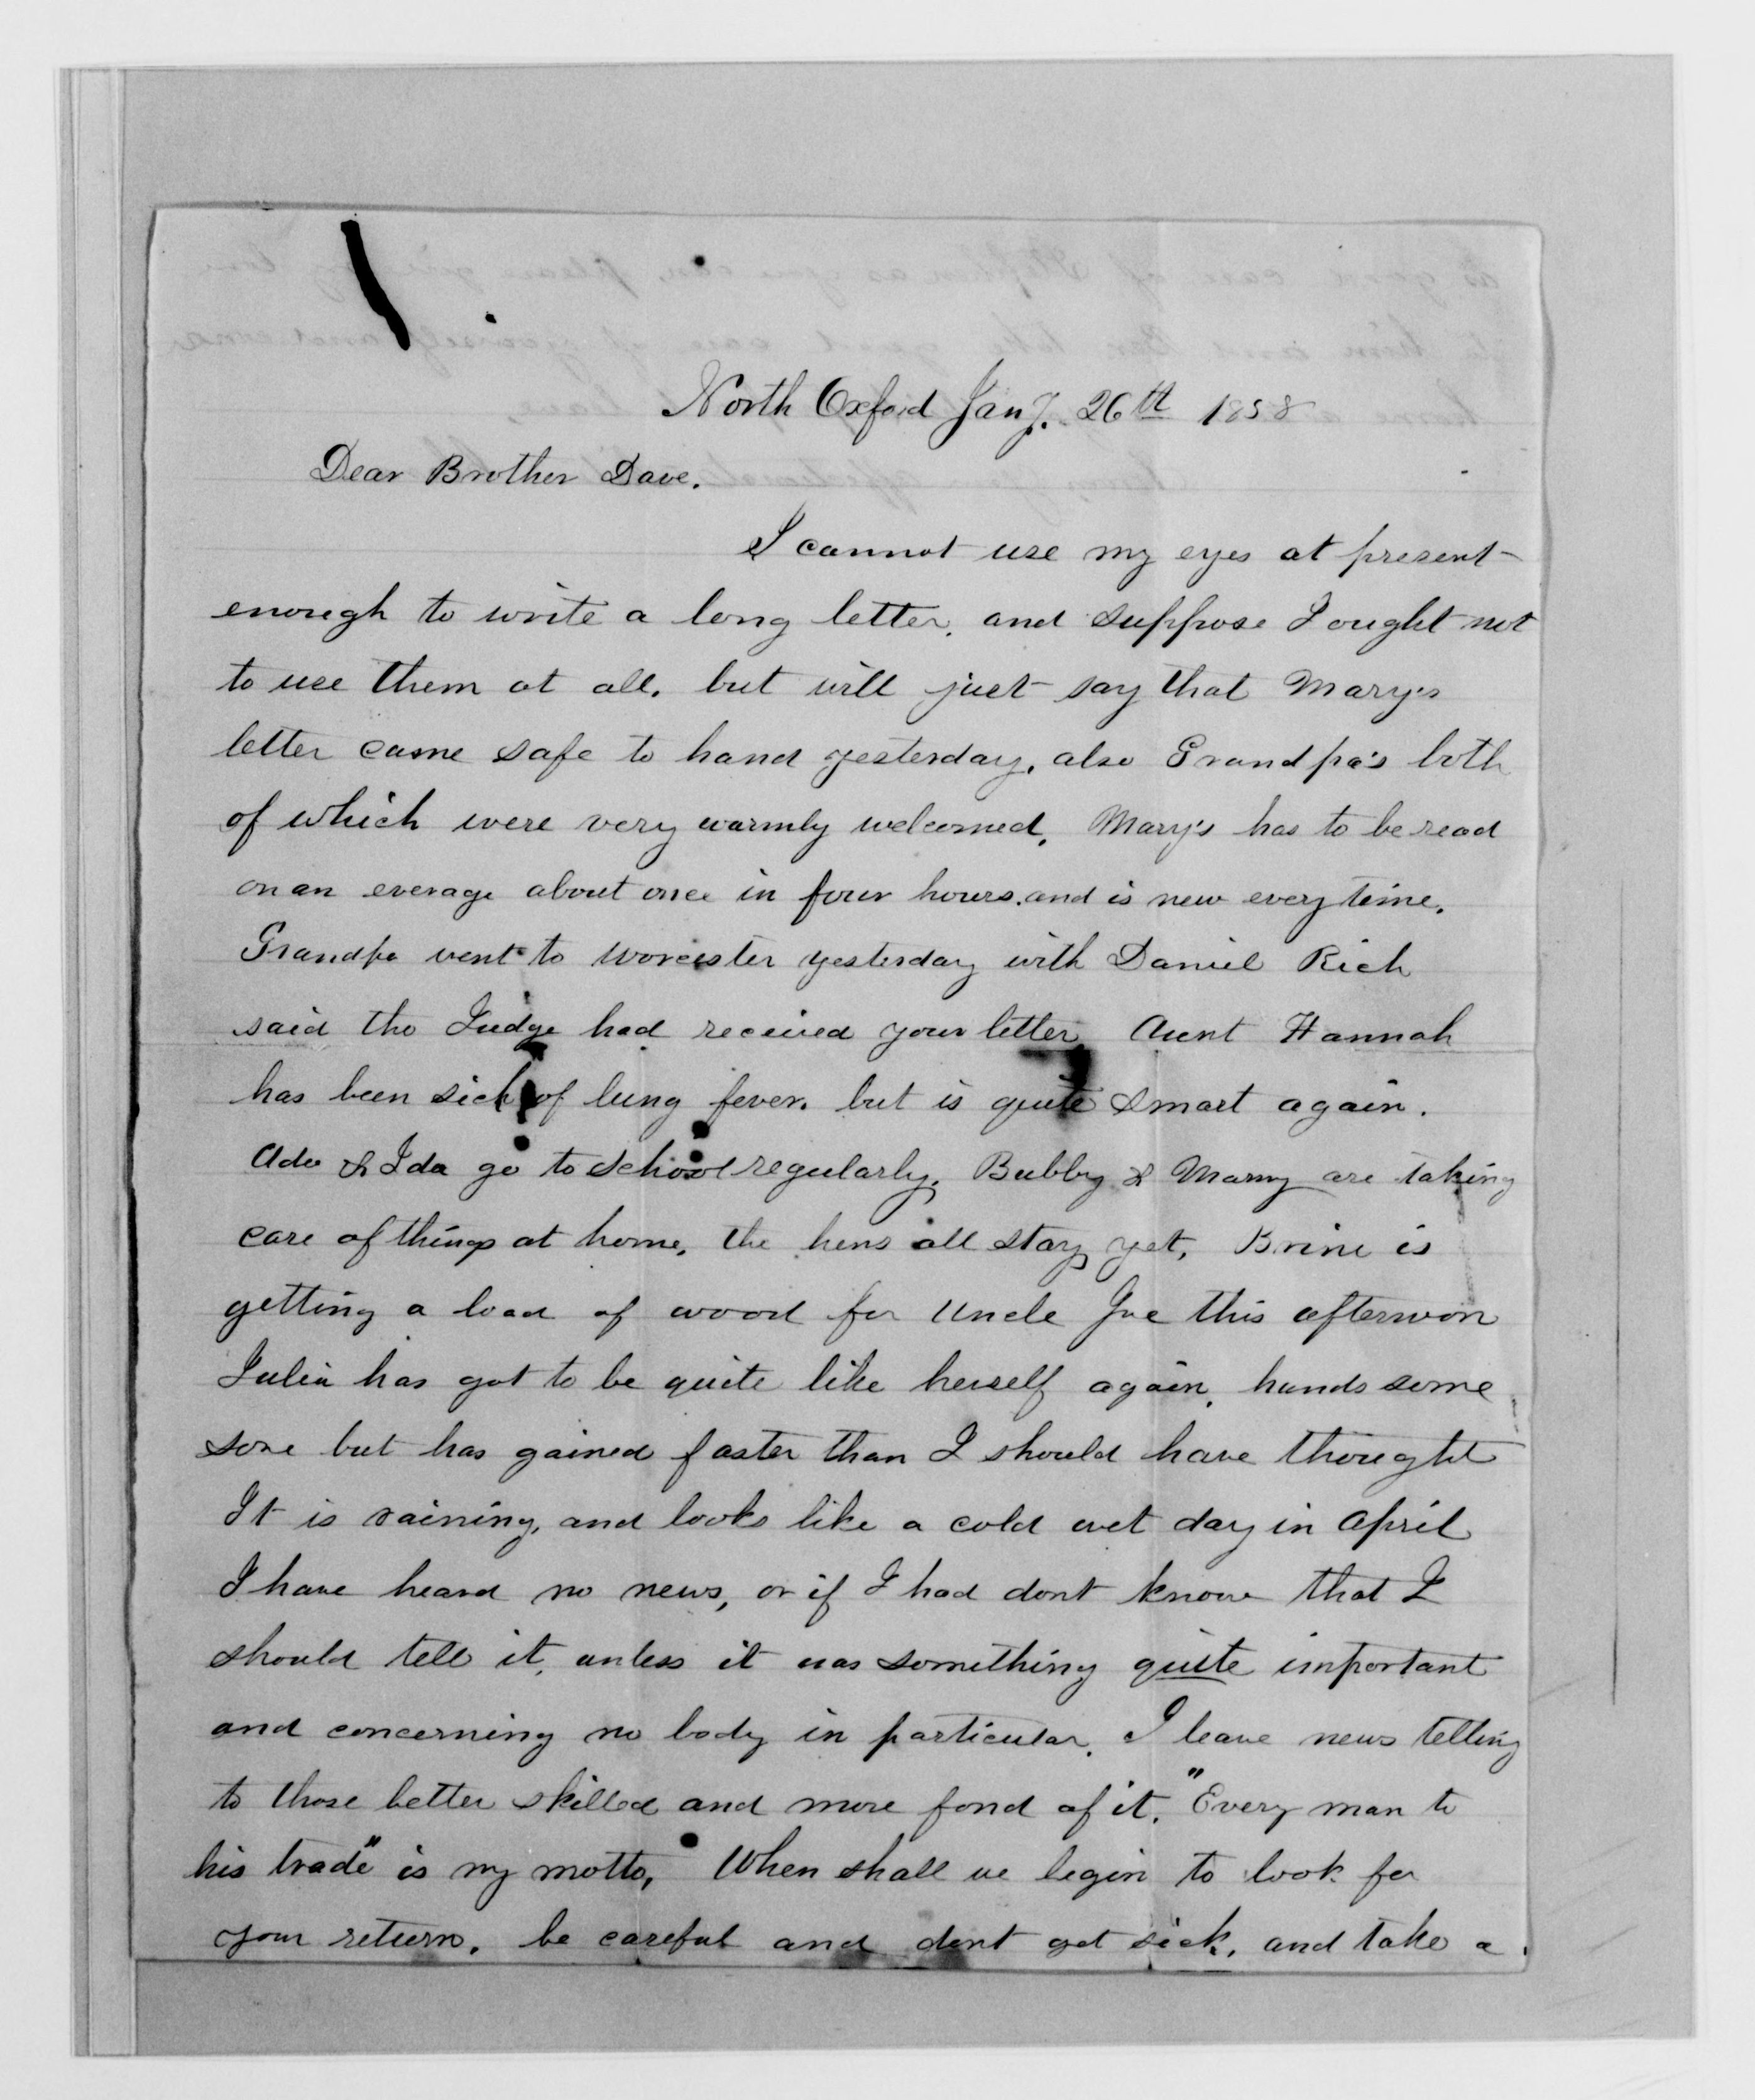 North Oxford Jany. 26th 1858
Dear Brother Dave.
I cannot use my eyes at present
enough to write a long letter, and suppose I ought not
to use them at all. but will just say that Mary's
letter came safe to hand yesterday, also Grandpa's both
of which were very warmly welcomed. Mary's has to be read
on an everage about once in four hours. and is new every time.
Grandpa went to Worcester yesterday with Daniel Rich
said the Judge had received your letter. Aunt Hannah
has been sick of lung fever. but is quite smart again.
Ada & Ida go to school regularly. Bubby & Mamy are taking
care of things at home, the hens all stay yet, Brine is
getting a load of wood for Uncle Joe this afternoon
Julia has got to be quite like herself again. hands some
sore but has gained faster than I should have thought
It is raining, and looks like a cold wet day in April
I have heard no news, or if I had dont know that I
should tell it, unless it was something quite important
and concerning no body in particular. I leave news telling
to those better skilled and more fond of it. "Every man to
his trade" is my motto, When shall we begin to look for
your return. be careful and dont get sick. and take a